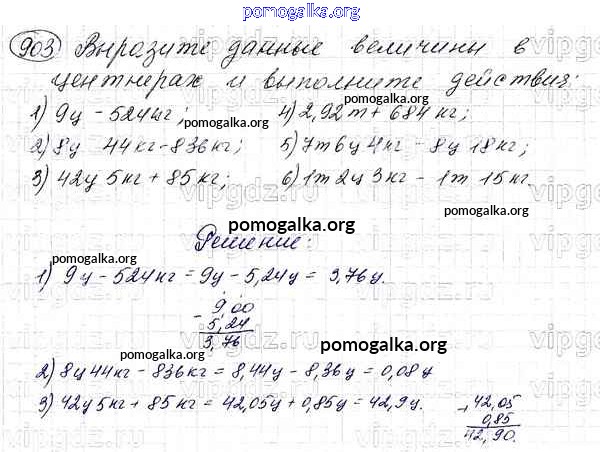 pomogalka.org
903 Выразите данные величины в
центнерах и выполните действия:
pomogalka.org
1) 9ц - 524кг; 4) 2,92т + 684 кг;
pomogalka.org
2) 8ц 44кг - 836кг; 5) 7т 6ц 4кг - 8ц 18кг;
3) 42ц 5кг + 85кг; 6) 1т 2ц 3кг - 1т 15кг.
pomogalka.org pomogalka.org
pomogalka.org
Решение:
pomogalka.org
1) 9ц - 524кг = 9ц - 5,24ц = 3,76ц.
- 9,00
5,24
3,76
pomogalka.org
pomogalka.org
2) 8ц 44кг - 836кг = 8,44ц - 8,36ц = 0,08ц
3) 42ц 5кг + 85кг = 42,05ц + 0,85ц = 42,9ц.
+ 42,05
0,85
42,90.